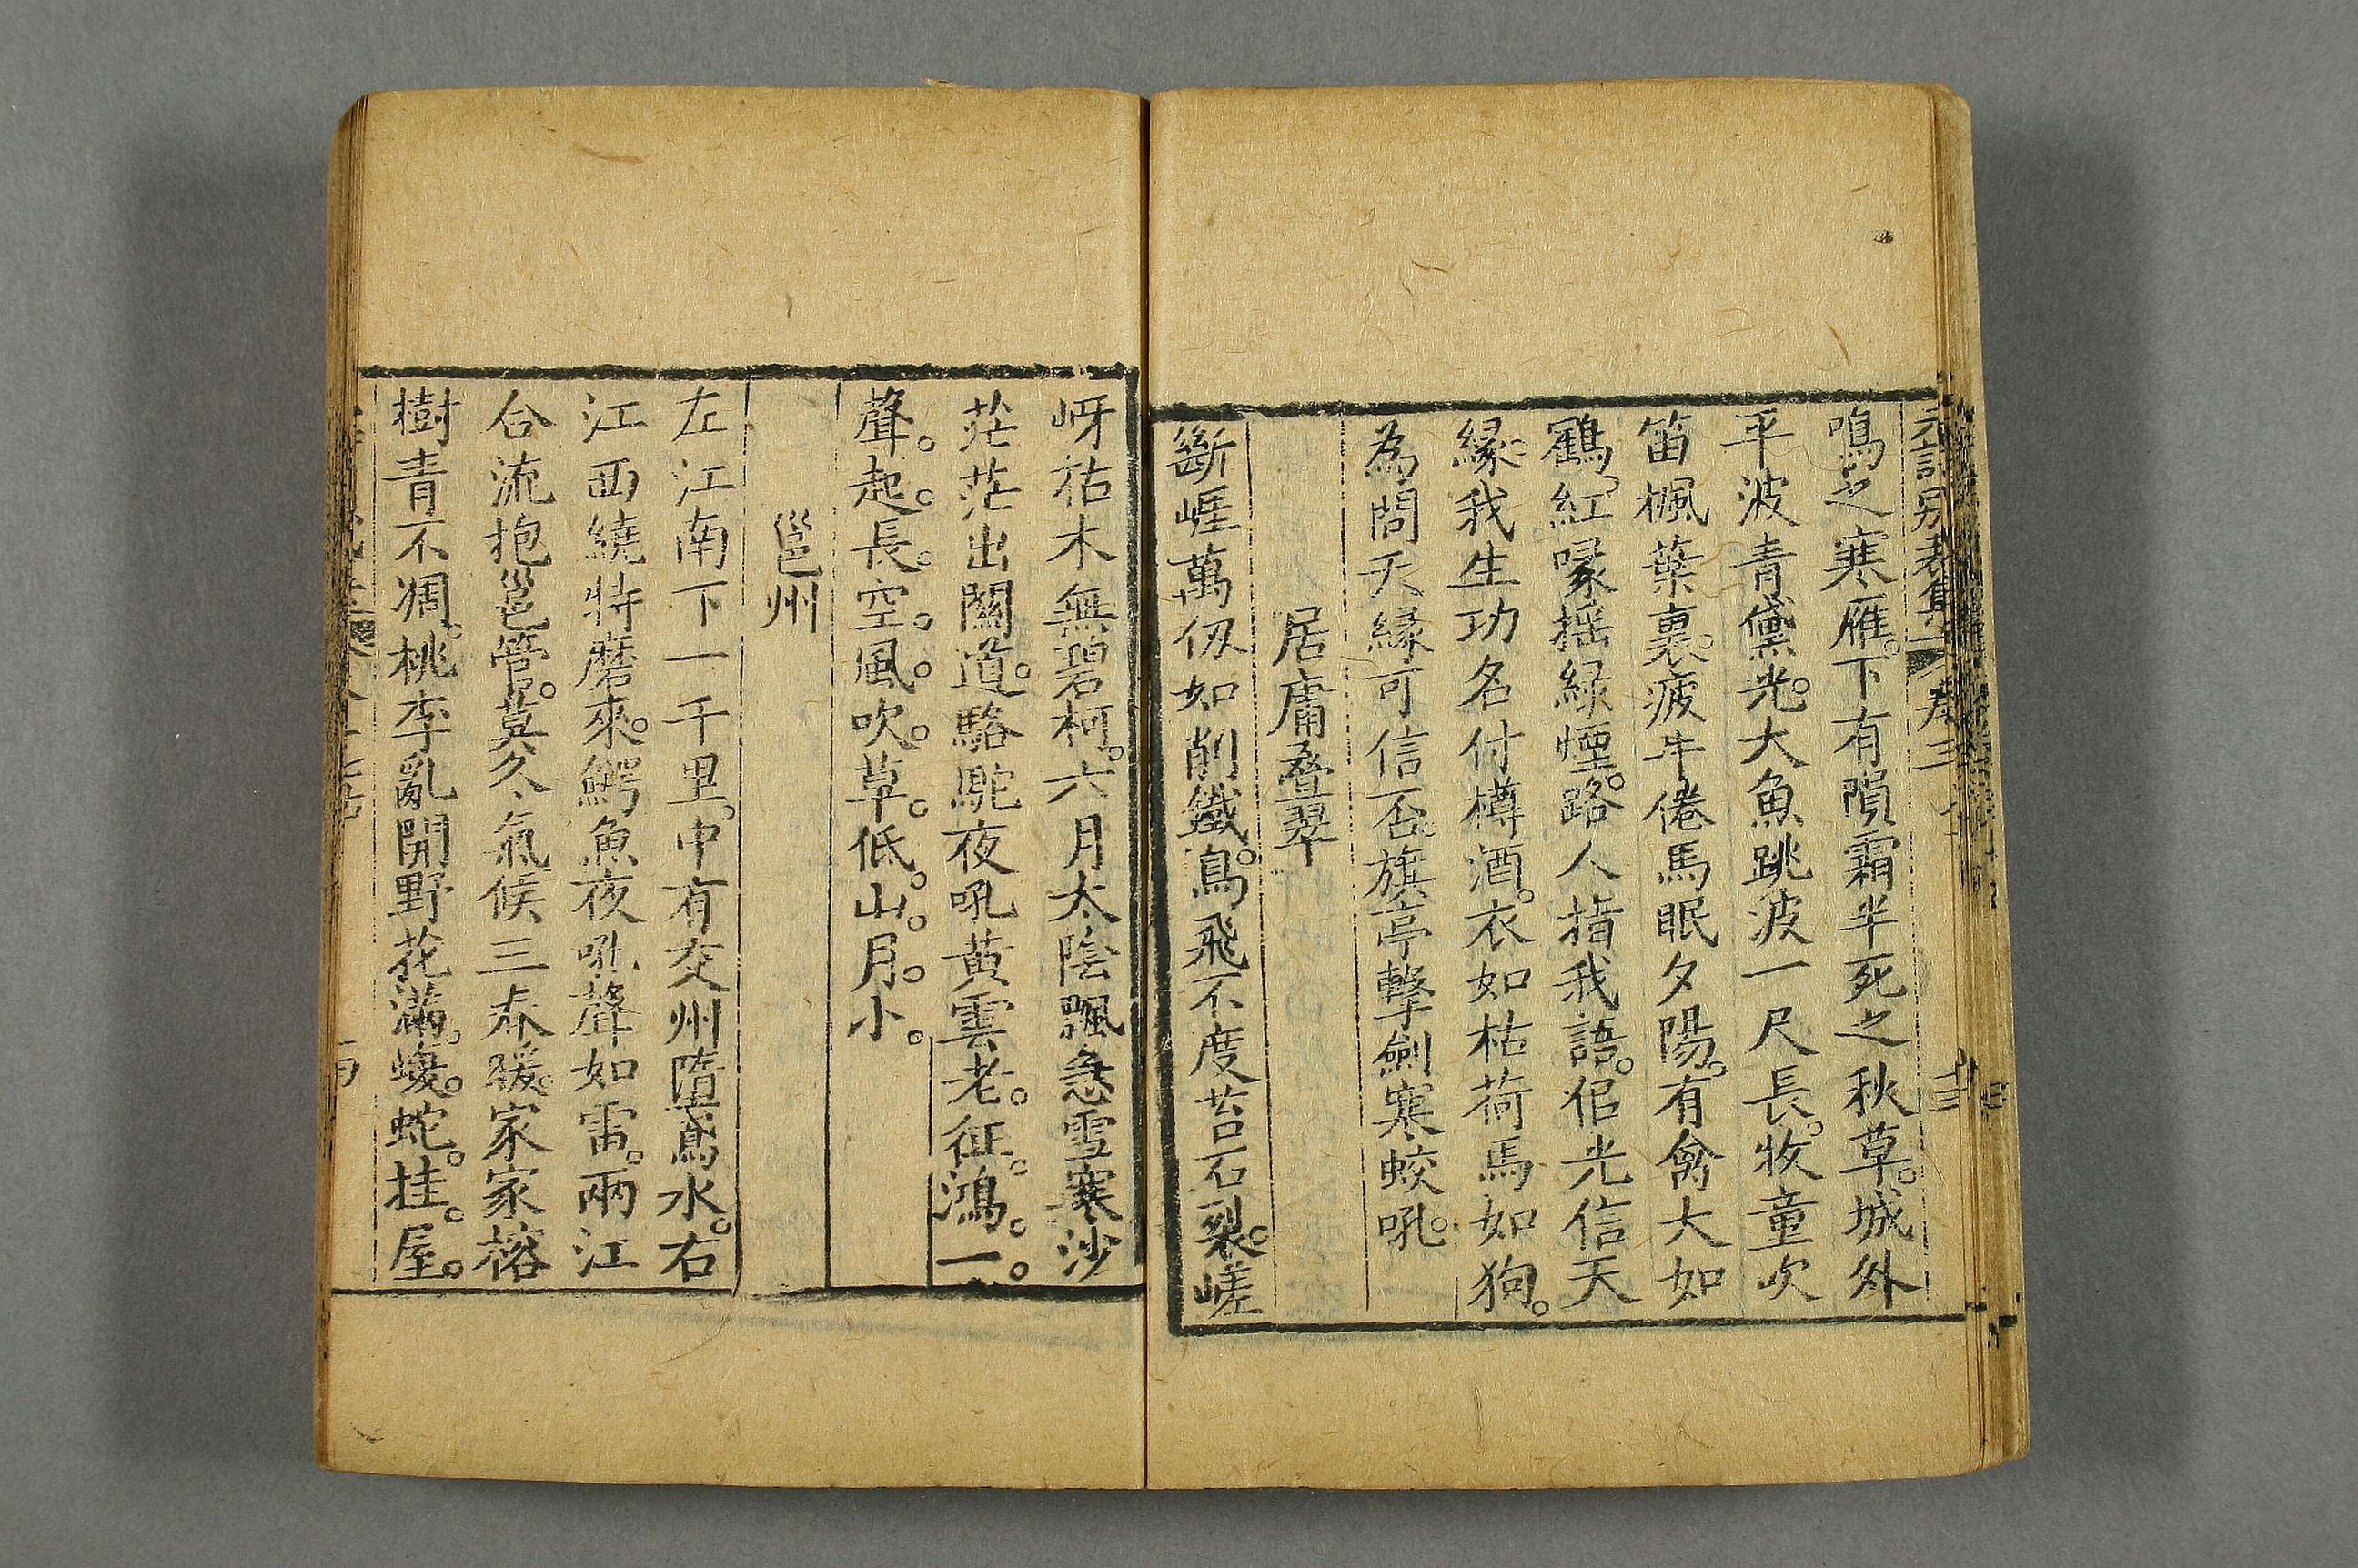 元詩別裁集 卷三 十三
鳴之寒雁。下有隕霜半死之秋草。城外
平波青黛光。大魚跳波一尺長。牧童吹
笛楓葉裏。疲牛倦馬眠夕陽。有禽大如
鶴。紅喙搖綠煙。路人指我語。佀光信天
緣。我生功名付樽酒。衣如枯荷馬如狗。
為問天緣可信否。旗亭擊劍寒蛟吼。
居庸疊翠
斷崖萬仭如削鐵。鳥飛不度苔石裂。嵯
岈祜木無碧柯。六月太陰飄急雪寒沙
茫茫出關道。駱駝夜吼黃雲老。征。鴻。一。
聲。起。長。空。風。吹。草。低。山。月。小。
邕州
左江南下一千里。中有交州墮鳶水。右
江西繞特磨來。鰐魚夜吼聲如雷。兩江
合流抱邕管。莫冬氣候三春暖。家家榕
樹青不凋。桃李亂開野花滿。蝮。蛇。挂。屋。